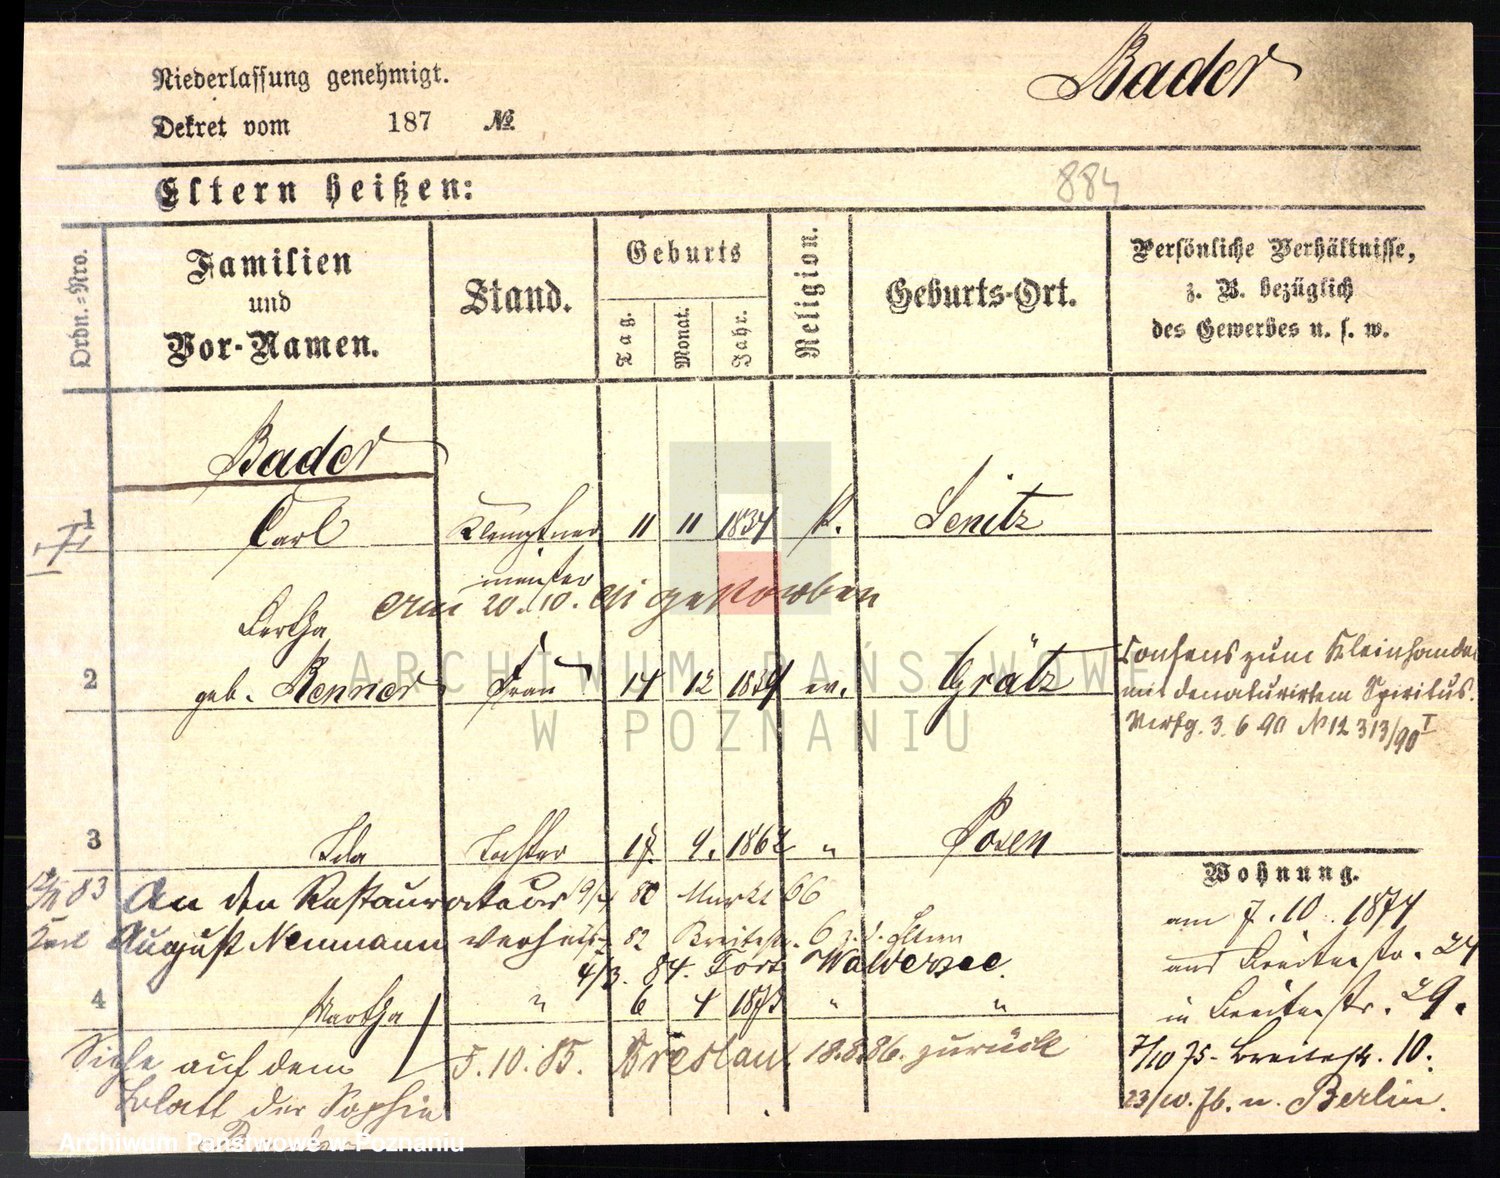 Bader
Niederlassung genehmigt.
Dekret vom 187 №
Eltern heißen:
884
Ordn.-Nro.
Familien
und
Vor-Namen.
Stand.
Geburts
Tag.
Monat.
Jahr.
Religion.
Geburts-Ort.
Persönliche Verhältnisse,
z. B. bezüglich
des Gewerbes u. s. w.
Bader
1 Carl Klemptner 11 11 1834 k. Lenitz
meister
Am 20.10. gestorben
Bertha
2 geb. Renner Frau 14 12 1834 ev. Grätz
Consens zum Kleinhandel
mit denaturirtem Spiritus.
Verfg. 3. 6 90 № 12 313/90 I
ARCHIWUM PAŃSTWOWE
W POZNANIU
3 Ida Tochter 4. 1862 " Posen
Wohnung.
83 An den Restaurateur 80 Markt 66
August Neumann verheir. 82 Breitestr. 6 z. d. Eltern
4/3. 84. Fort Waldersee.
4 Martha " 6 4 1875 " "
am 7.10. 1874
aus Breitestr. 24
in Breitestr. 29.
7/10 75 Breitestr. 10.
23/10. 76. n. Berlin.
Siehe auf dem 5.10.85. Breslau. 18.8.86. zurück
Blatt der Sophie
Archiwum Państwowe w Poznaniu